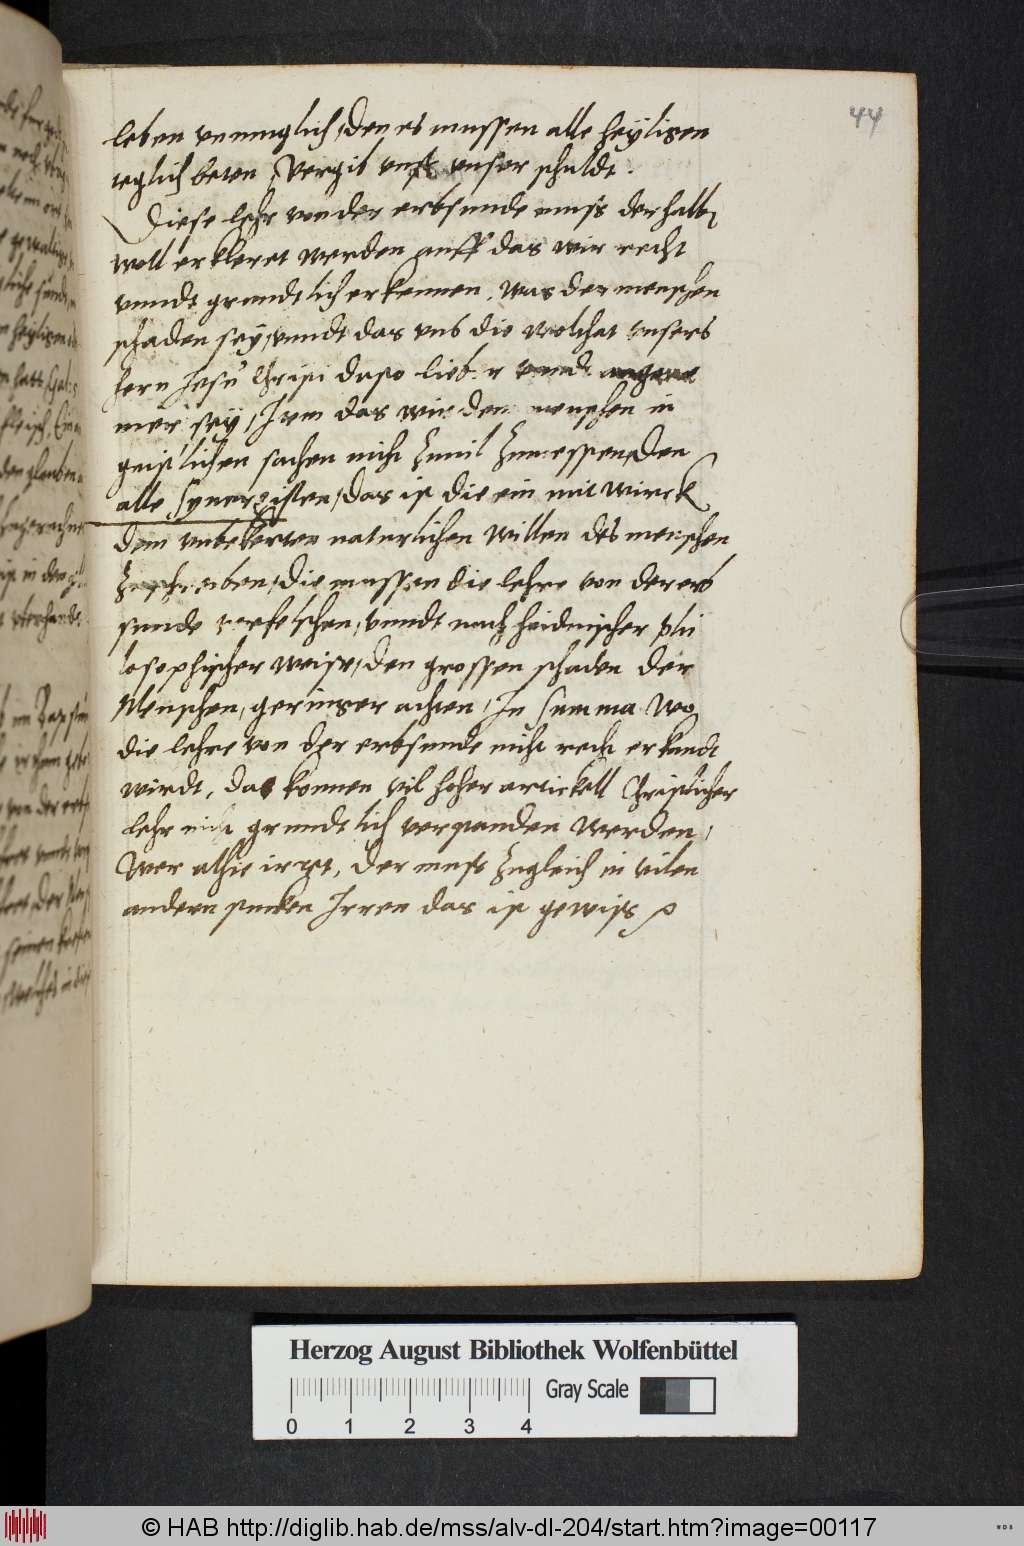 44
leben vnmuglich, den es mussen alle heyligen
teglich beten, Vergib vnß vnser schuldt.
Diese lehr von der erbsunde muss derhalb
woll erkleret werden auff das wir recht
vnndt grundtlich erkennen, was der menschen
schaden sey, vnndt das vns die wolthat vnsers
hern Jesu Christi dasto lieber vnndt angene
mer sey, Item das wir dem menschen in
geistlichen sachen nicht zuuil zumessen, Den
alle Synergisten, das ist die ein mitwirck
dem vnbekerten naturlichen willen des menschen
zuschreiben, die mussen die lehre von der erb
sunde verfelschen, vnndt nach heidnischer phi
losophischer weise, den grossen schaden der
Menschen, geringer achten, In summa wo
die lehre von der erbsunde nicht recht erkandt
wirdt, da konnen vil hoher artickell Christlicher
lehr nicht grundtlich verstanden werden,
Wer alhie irret, der muss zugleich in vilen
andern stucken Irren das ist gewiss
Herzog August Bibliothek Wolfenbüttel
Gray Scale
0 1 2 3 4
© HAB http://diglib.hab.de/mss/alv-dl-204/start.htm?image=00117